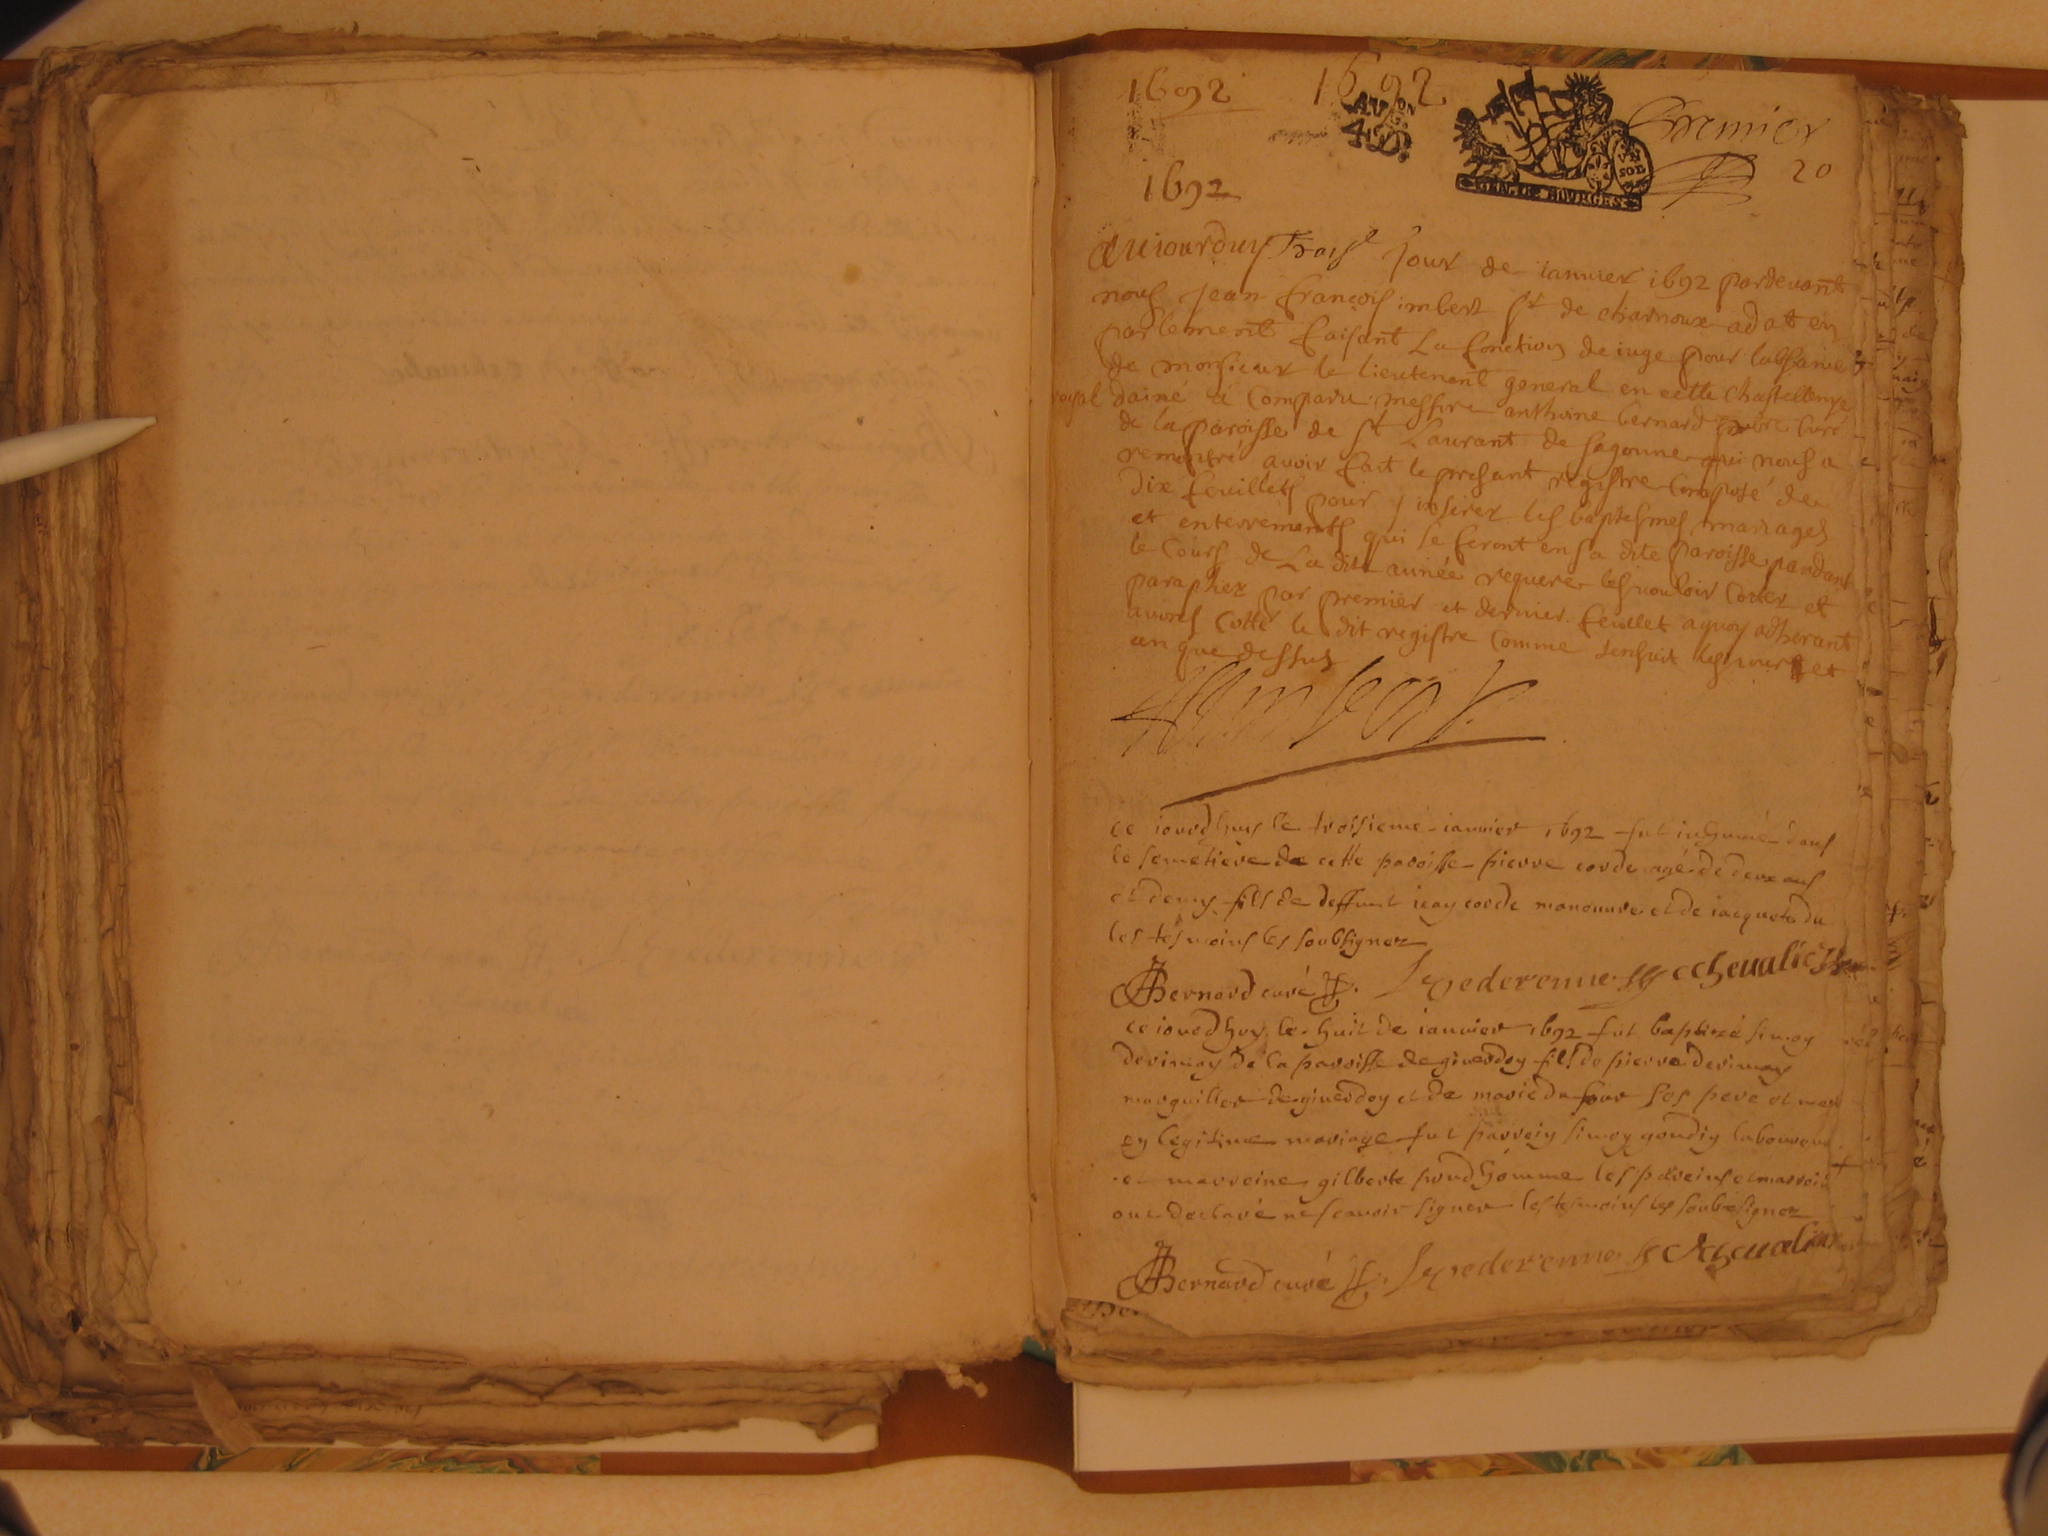 1692 1692 Premier
20
VN SOL
GEN. DE BOVRGES
1692
Aujourduy Trois.e Jour de ianvier 1692 pardevant
nous Jean françois imbert sr de charnoux adat en
parlement faisant La fonction de iuge pour labsance
de monsieur le lieutenent general en cette chastellenye
royal dainé a comparu messire anthoine bernard pbre curé
de la paroisse de st Laurant de sagonne qui nous a
remontré avoir fait le presant registre composé de
dix feuillets pour y insérer les baptesmes mariages
et enterrements qui se feront en sa dite paroisse pandant
le cours de La dite année requere les vouloir coter et
parapher par premier et dernier feuillet a quoy adherant
avons cotté le dit registre comme sensuit les jours et
an que dessus
Imbert
ce iourdhuy le troisieme ianvier 1692 fut inhumé dans
le semetiere de cette paroisse pierre corde agé de deux ans
et demy fils de deffunt iean corde manouvre et de iacquete du
les tesmoins les soubsignez
ABernard curé Lepederenne chevalier
ce iourdhuy le huit de ianvier 1692 fut baptizé simon
de la paroisse de giverdon fils de pierre
marguillier de giverdon et de marie dufour ses pere et mere
en legitime mariage fut parrein simon gondin laboureur
et marreine gilberte prudhomme les pareins et marreine
ont declaré ne scavoir signer les tesmoins les soubsignez
ABernard curé Lepederenne chevalier